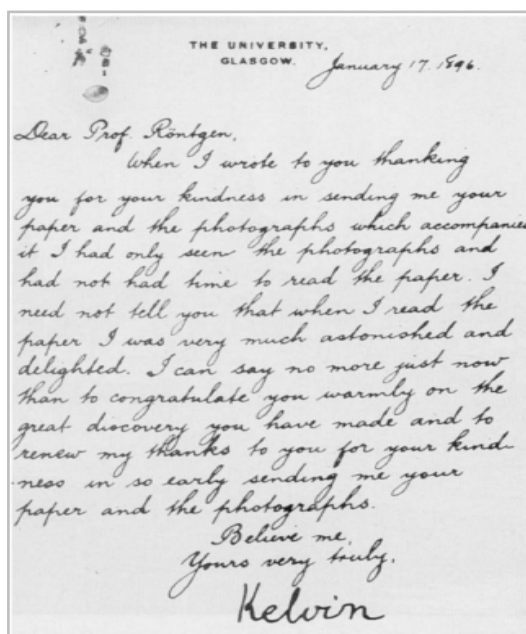 THE UNIVERSITY,
GLASGOW.
January 17. 1896.
Dear Prof. Röntgen,
When I wrote to you thanking
you for your kindness in sending me your
paper and the photographs which accompanied
it I had only seen the photographs and
had not had time to read the paper. I
need not tell you that when I read the
paper I was very much astonished and
delighted. I can say no more just now
than to congratulate you warmly on the
great discovery you have made and to
renew my thanks to you for your kind-
ness in so early sending me your
paper and the photographs.
Believe me,
Yours very truly,
Kelvin